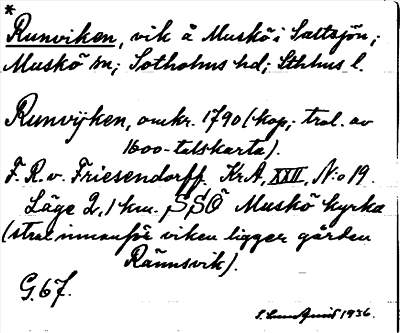 *
Runviken, vik å Muskö i Saltsjön;
Muskö sn; Sotholms hd; Sthlms l.
Runvijken, omkr. 1790 (kop; trol. av
1600-talskarta).
F. R. v. Friesendorff. KrA, XXII, N:o 19.
Läge 2,1 km. SSÖ Muskö kyrka
(strax innanför viken ligger gården
Rännsvik).
G. 67.
1936.